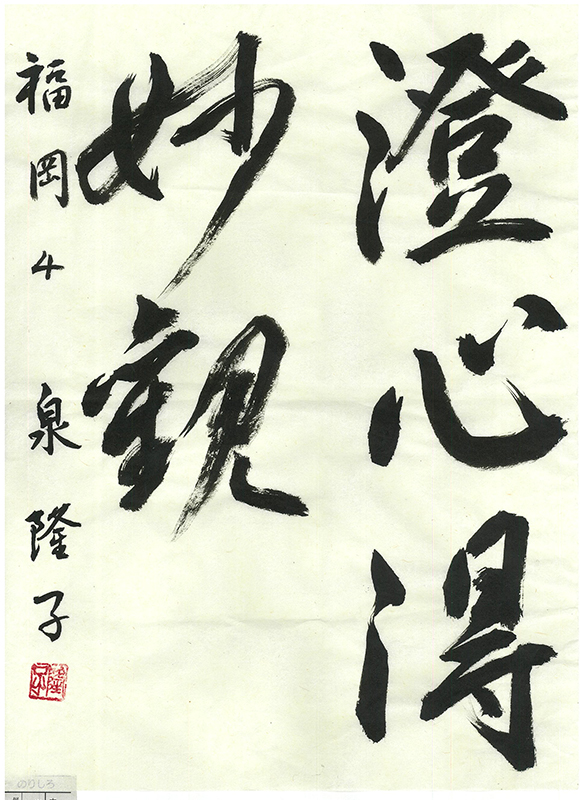 澄心得
妙観
福岡 4 泉隆子
隆子
のりしろ